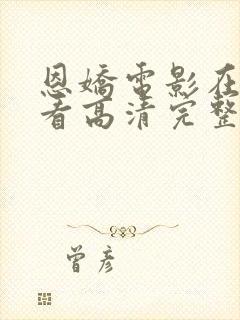 恩嬌電影在
看高清完整
曾彥